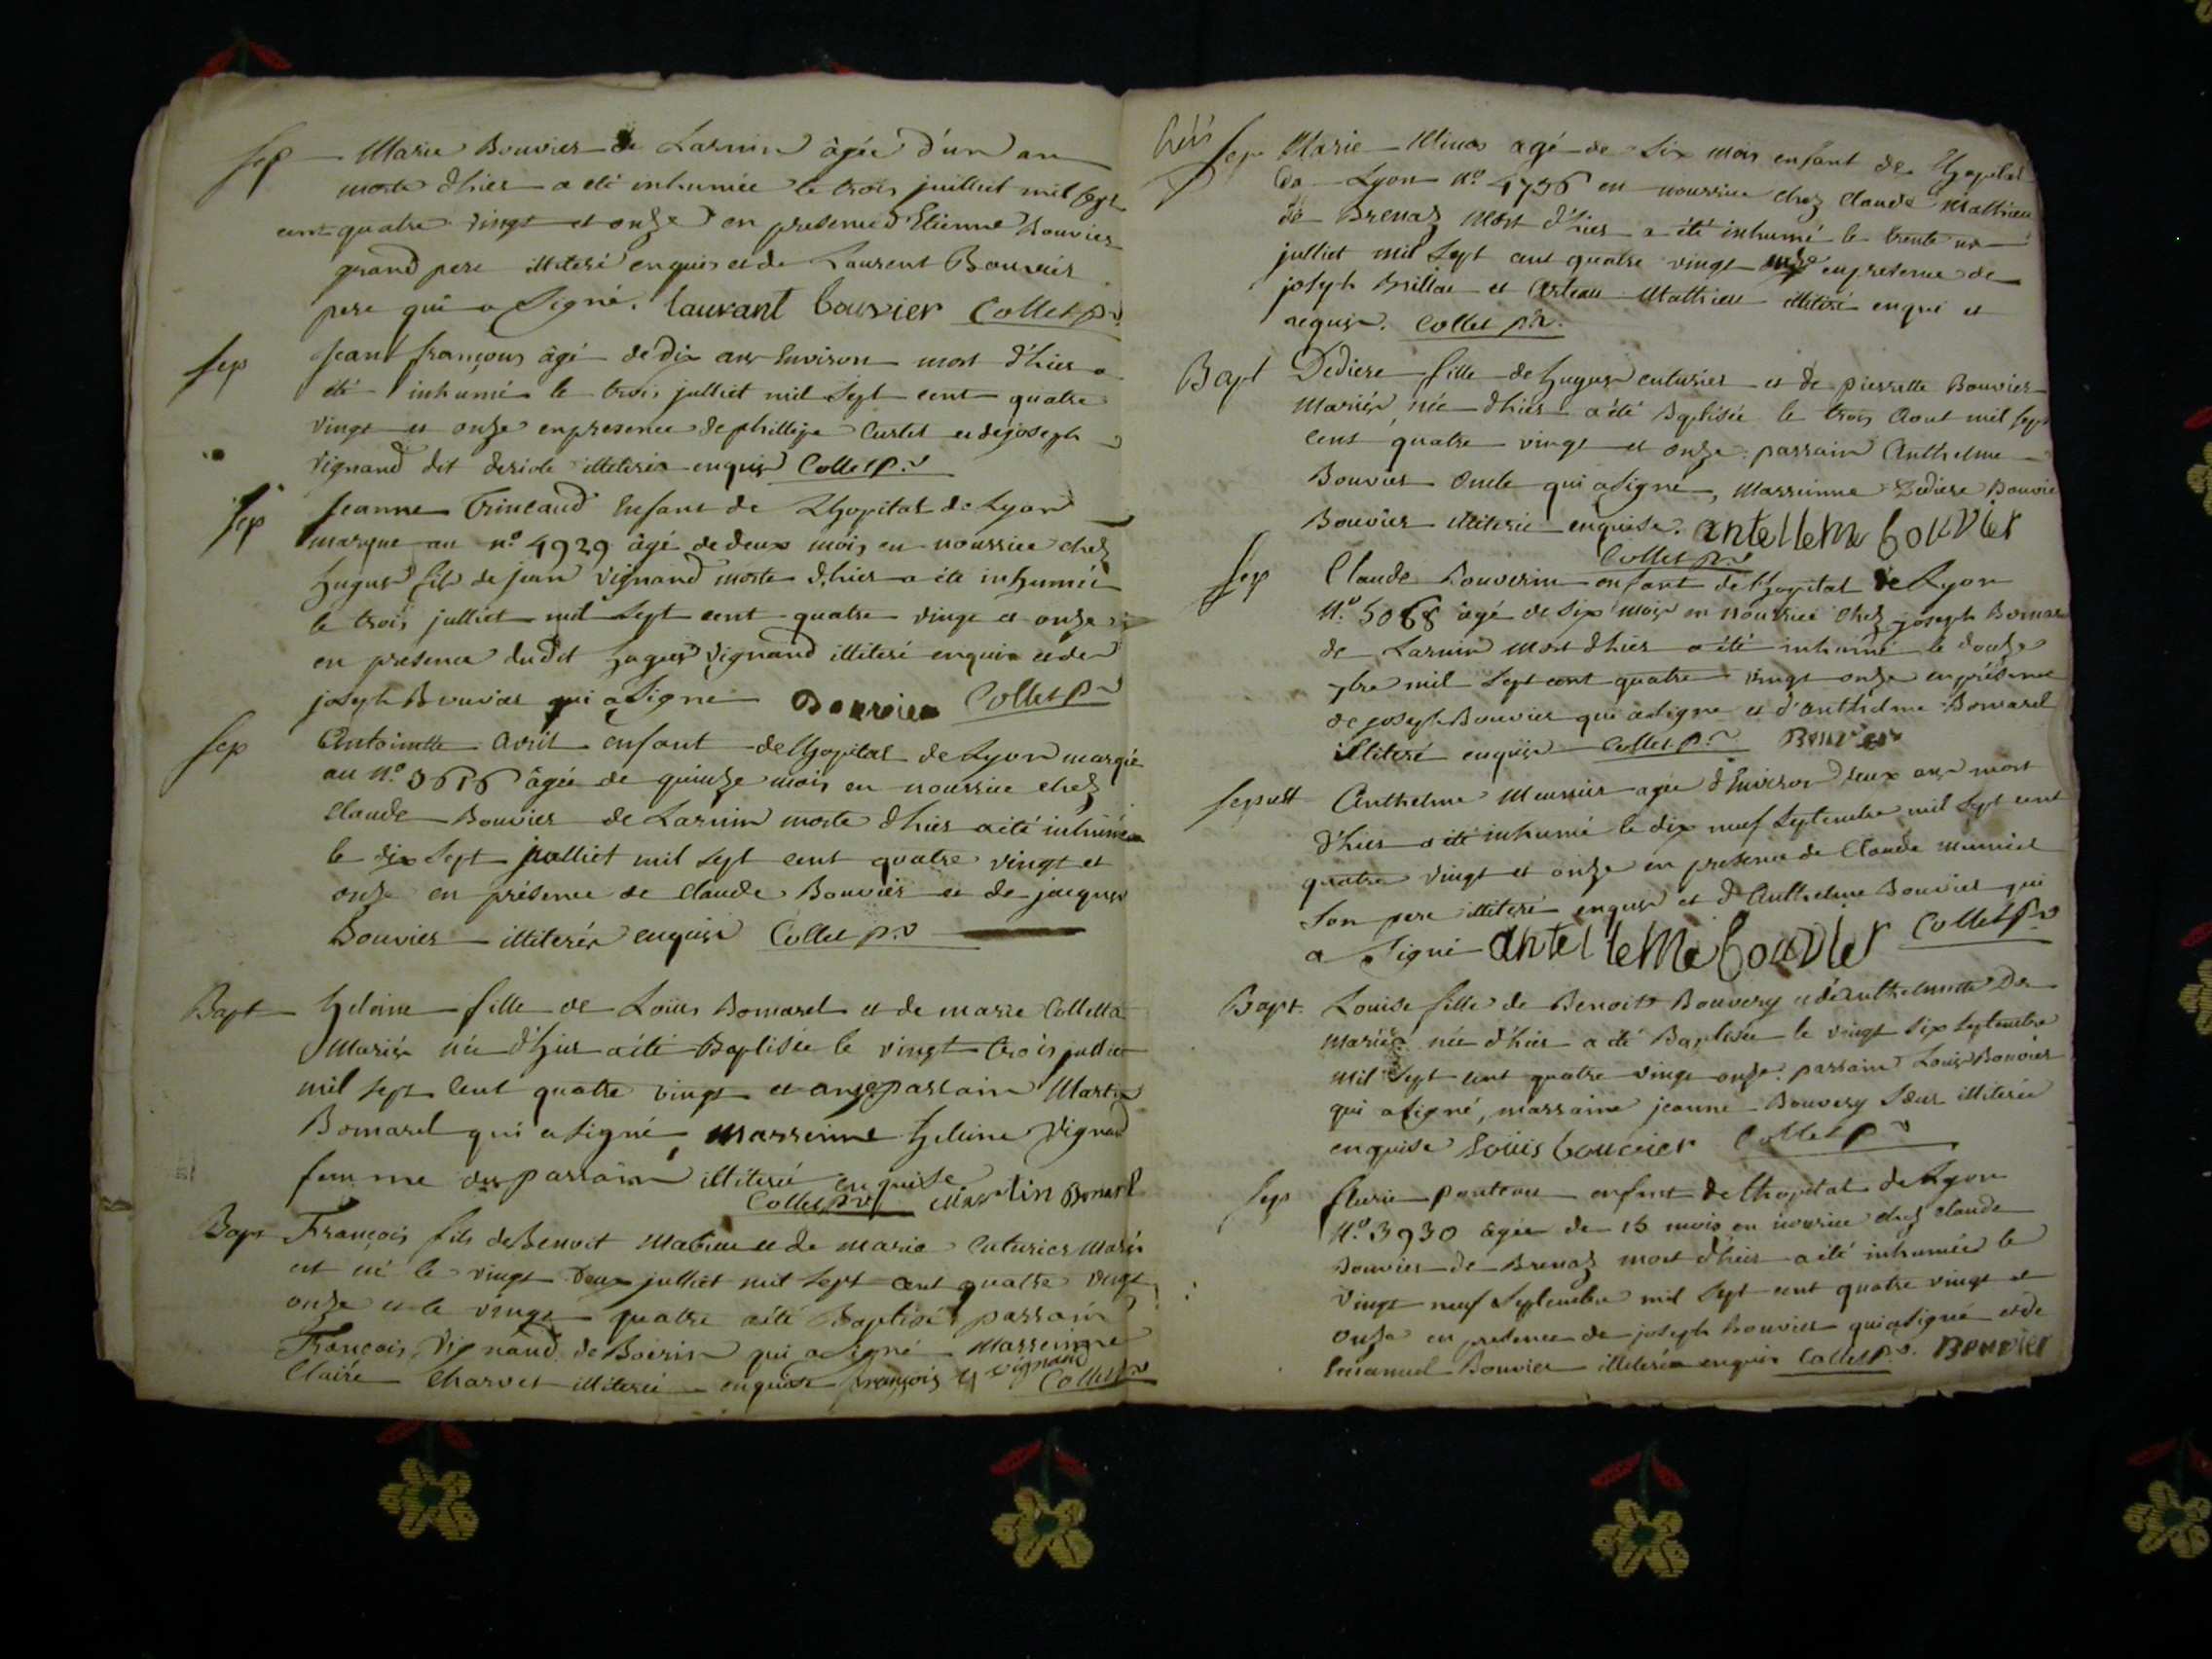 Sep Marie Bouvier de Larnin âgée d'un an
morte d'hier a été inhumée le trois juilliet mil sept
cent quatre vingt et onze en presence d'Etienne Bouvier
grand pere illiteré enquis et de Laurent Bouvier
pere qui a signé. laurant bouvier Collet p.r
Sep Jean françois âgé de dix ans Environ mort d'hier a
été inhumé le trois julliet mil sept cent quatre
vingt et onze en presence de phillipe Curtet et de joseph
vignand dit illiterés enquis Collet p.r
Sep Jeanne Trincaud Enfant de Lhopital de Lyon
marque au n.º 4929 âgé de deux mois en nourrice chez
hugus fils de jean vignand morte d'hier a été inhumée
le trois julliet mil sept cent quatre vingt et onze
en presence dudit hugus vignand illiteré enquis et de
joseph Bouvier qui a signe Bouvier Collet p.r
Sep Antoinette avril enfant de Lhopital de Lyon marqué
au N.º 3616 âgée de quinze mois en nourrice chez
Claude Bouvier de Larnin morte d'hier a été inhumée
le dix sept julliet mil sept cent quatre vingt et
onze en présence de Claude Bouvier et de jacques
Bouvier illiterés enquis Collet p.r
Bapt heleine fille de Louis Bomarel et de marie Colletta
Mariés née d'hier a été Baptisée le vingt trois julliet
mil sept cent quatre vingt et onze parrain Martin
Bomarel qui a signé, Marreinne heleine vignand
femme du parrain illiterée enquise
Collet p.r Martin Bomarel
Bapt François fils de Benoit Matieu et de marie Cuturier Mariés
est né le vingt deux julliet mil sept cent quatre vingt
onze et le vingt quatre a été Baptisé parrain
François Vignand de Boirin qui a signé Marreinne
Claire Charvet illiterée enquise françois vignand
Collet p.r
Sep Marie agé de six mois enfant de Lhopital
de Lyon N.º 4756 en nourrice chez Claude Mathieu
de Brenaz Mort d'hier a été inhumé le trente un
julliet mil sept cent quatre vingt onze en presence de
joseph Brillat et Mathieu illiteré enqui et
requis. Collet p.r
Bapt Dediere fille de hugus cuturier et de pierrette Bouvier
Mariés née d'hier a été Baptisée le trois Aout mil sept
cent quatre vingt et onze. parrain Anthelme
Bouvier Oncle qui a signé, Marreinne Dediere Bouvie
Bouvier illiterée enquise. antelleme bouvier
Collet p.r
Sep Claude Bouverin enfant de Lhopital de Lyon
N.º 5068 âgé de six mois en nourrice chez joseph Bomar
de Larnin mort d'hier a été inhumé le douze
7bre mil sept cent quatre vingt onze en présence
de joseph Bouvier qui a signe et d'anthelme Bomarel
illiteré enquis Collet p.r Bouvier
Sepult Anthelme Meunier agée d'Environ deux ans mort
d'hier a été inhumé le dix neuf Septembre mil sept cent
quatre vingt et onze en presence de Claude meunier
son pere illiteré enquis et d'Anthelme Bouvier qui
a signé antelleme bouvier Collet p.r
Bapt. Louise fille de Benoit Bouvery et de anthelmette
mariés née d'hier a été Baptisée le vingt six septembre
mil sept cent quatre vingt onze. parrain Louis Bouvier
qui a signé, marraine jeanne Bouvery sœur illiterée
enquise Louis bouvier Collet p.r
Sep fleurie ponteau enfant de Lhopital de Lyon
N.º 3930 âgée de 15 mois en nourrice chez Claude
Bouvier de Brenaz mort d'hier a été inhumée le
vingt neuf Septembre mil sept cent quatre vingt et
onze en presence de joseph bouvier qui a signé et de
Emanuel Bouvier illiterés enquis Collet p.r. Bouvier